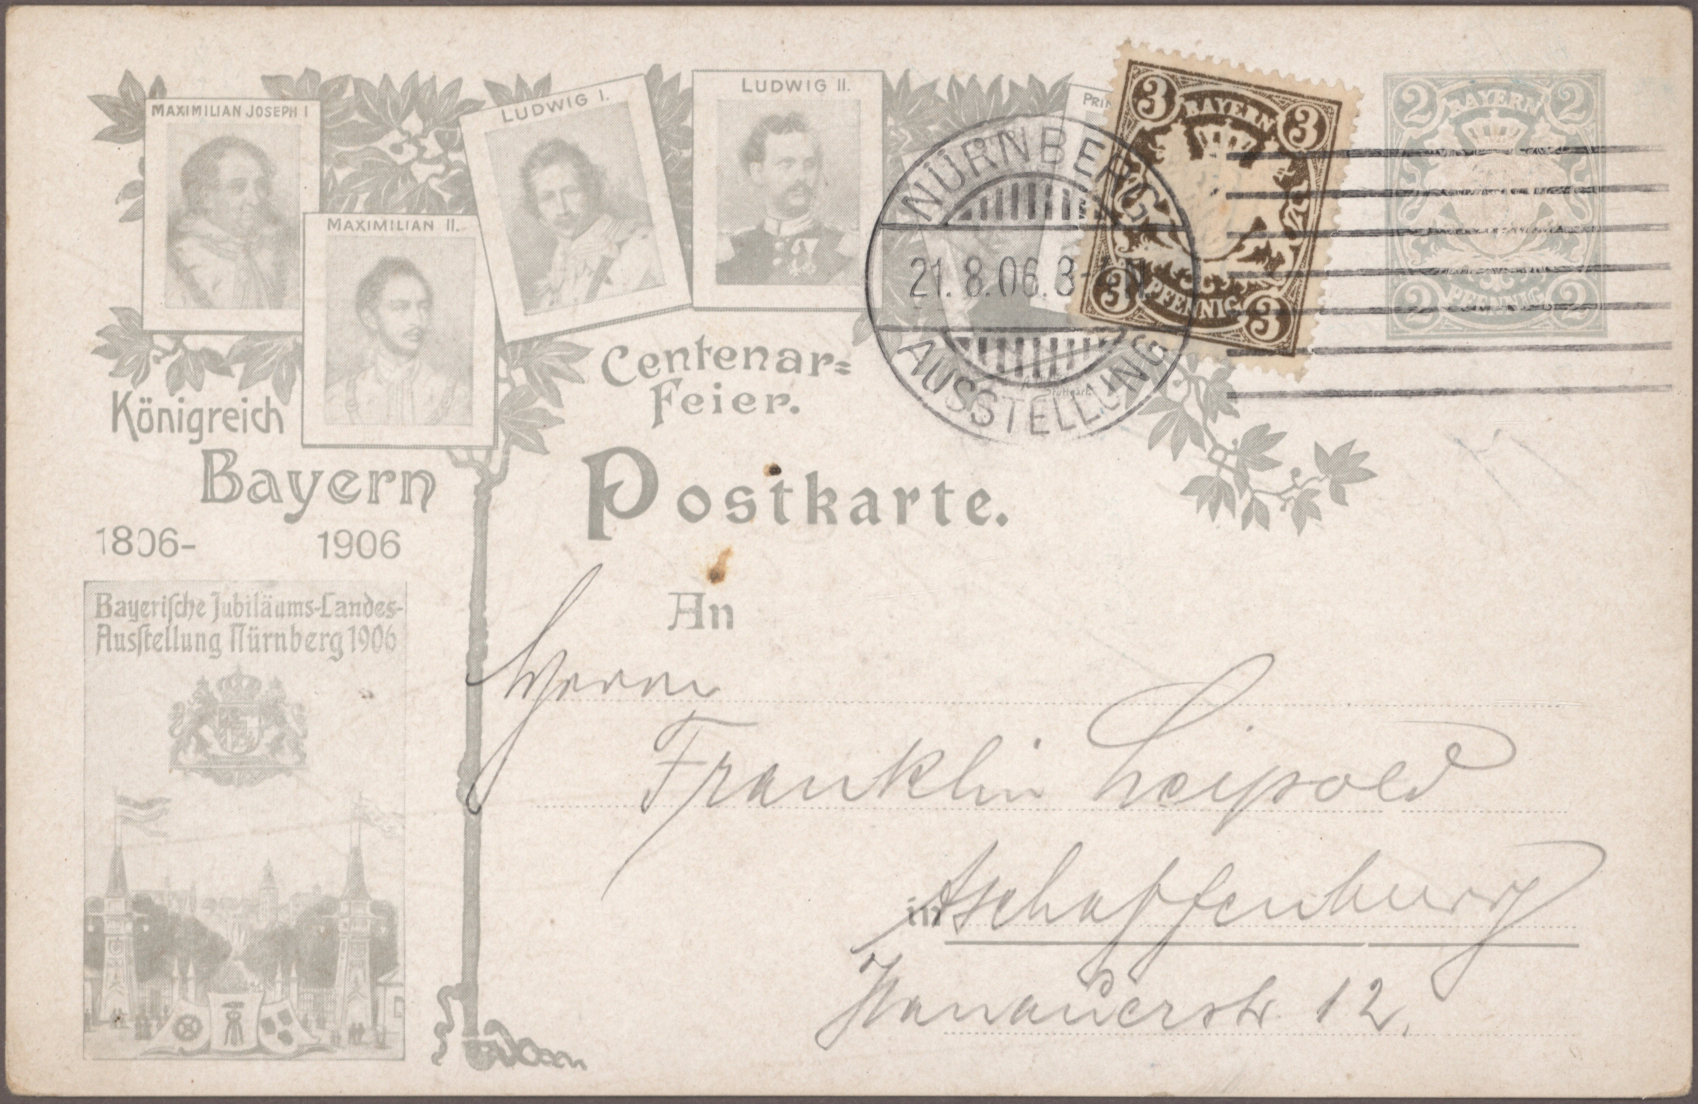 MAXIMILIAN JOSEPH I
MAXIMILIAN II.
LUDWIG I.
LUDWIG II.
NÜRNBERG
21.8.06.8-
AUSSTELLUNG
3 BAYERN 3
3 PFENNIG 3
2 BAYERN 2
2 PFENNIG 2
Centenar=
Feier.
Königreich
Bayern
1806- 1906
Postkarte.
Bayerische Jubiläums-Landes-
Ausstellung Nürnberg 1906
An
Herrn
Franklin Leipold
in Aschaffenburg
Hanauerstr 12.